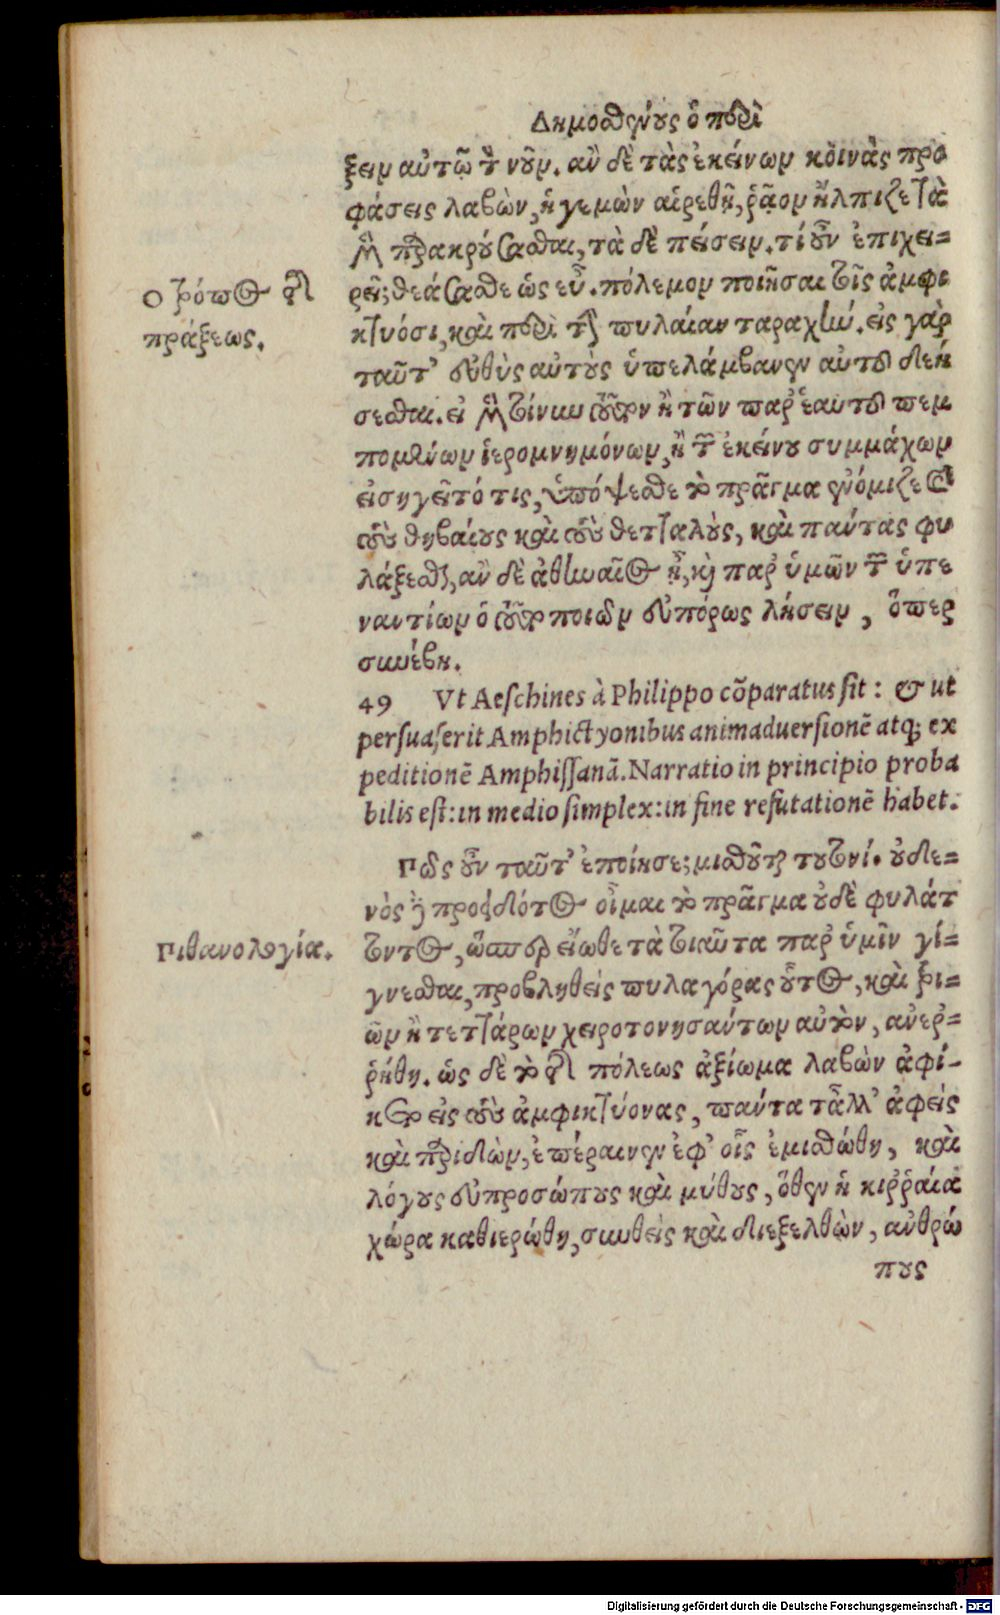 Δημοσθένους ὁ περὶ
ξειν αὐτῷ τὸν νοῦν. ἂν δὲ τὰς ἐκείνων κοινὰς προ
φάσεις λαβὼν, ἡγεμὼν αἱρεθῇ, ῥᾷον ἤλπιζε τὰ
μὲν παρακρούσασθαι, τὰ δὲ πείσειν. τί οὖν ἐπιχει=
ρεῖ; θεάσασθε ὡς εὖ. πόλεμον ποιῆσαι τοῖς ἀμφι
κτυόσι, καὶ περὶ τὴν πυλαίαν ταραχήν. εἰς γὰρ
ταῦτ' εὐθὺς αὐτοὺς ὑπελάμβανεν αὐτοῦ δεή
σεσθαι. εἰ μὲν τοίνυν τοῦτο ἢ τῶν παρ' ἑαυτοῦ πεμ
πομένων ἱερομνημόνων, ἢ τῶν ἐκείνου συμμάχων
εἰσηγεῖτό τις, ὑπόψεσθε τὸ πρᾶγμα ἐνόμιζε καὶ
τοὺς θηβαίους καὶ τοὺς θετταλοὺς, καὶ πάντας φυ
λάξεσθαι, ἂν δὲ ἀθηναῖος ᾖ, καὶ παρ' ὑμῶν τῶν ὑπε
ναντίων ὁ τοῦτο ποιῶν εὐπόρως λήσειν, ὅπερ
συνέβη.
Ὁ τρόπος τῆς
πράξεως.
49 Vt Aeschines à Philippo cõparatus sit: & ut
persuaserit Amphictyonibus animaduersionẽ atq; ex
peditionẽ Amphissanã. Narratio in principio proba
bilis est: in medio simplex: in fine refutationẽ habet.
Πῶς οὖν ταῦτ' ἐποίησε; μισθοῦται τουτονί. οὐδε=
νὸς δὲ προειδότος οἶμαι τὸ πρᾶγμα οὐδὲ φυλάτ
τοντος, ὥσπερ εἴωθε τὰ τοιαῦτα παρ' ὑμῖν γί=
γνεσθαι, προβληθεὶς πυλαγόρας οὗτος, καὶ τρι=
ῶν ἢ τεττάρων χειροτονησάντων αὐτὸν, ἀνερ=
ῥήθη. ὡς δὲ τὸ τῆς πόλεως ἀξίωμα λαβὼν ἀφί-
κετο εἰς τοὺς ἀμφικτύονας, πάντα τἆλλ' ἀφεὶς
καὶ παριδὼν, ἐπέραινεν ἐφ' οἷς ἐμισθώθη, καὶ
λόγους εὐπροσώπους καὶ μύθους, ὅθεν ἡ κιῤῥαία
χώρα καθιερώθη, συνθεὶς καὶ διεξελθὼν, ἀνθρώ
πους
Πιθανολογία.
Digitalisierung gefördert durch die Deutsche Forschungsgemeinschaft - DFG